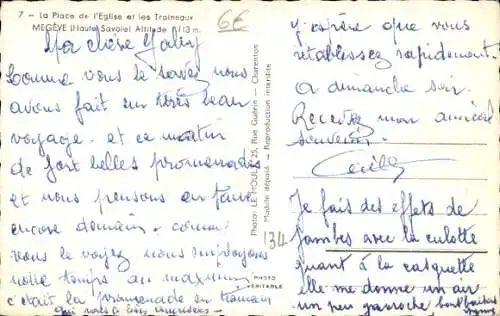 7 - La Place de l'Eglise et les Traineaux
MEGÈVE (Haute Savoie) Altitude 1113 m.
6€
Ma chère
Comme vous le savez nous
avons fait un très beau
voyage. et ce matin
de fort belles promenades
et nous pensons en faire
encore demain - comme
vous le voyez nous employons
notre temps au maximum
c'était la promenade en traineau
qui nous a bien
Photo: LE MOULT 25, Rue Guérin - Charenton
Modèle déposé - Reproduction interdite
134
PHOTO
VÉRITABLE
J'espère que vous
rétablissez rapidement.
a dimanche soir.
Recevez mon amical
souvenir.
Je fais des effets de
jambes avec la culotte
quant à la casquette
elle me donne un air
un peu gavroche